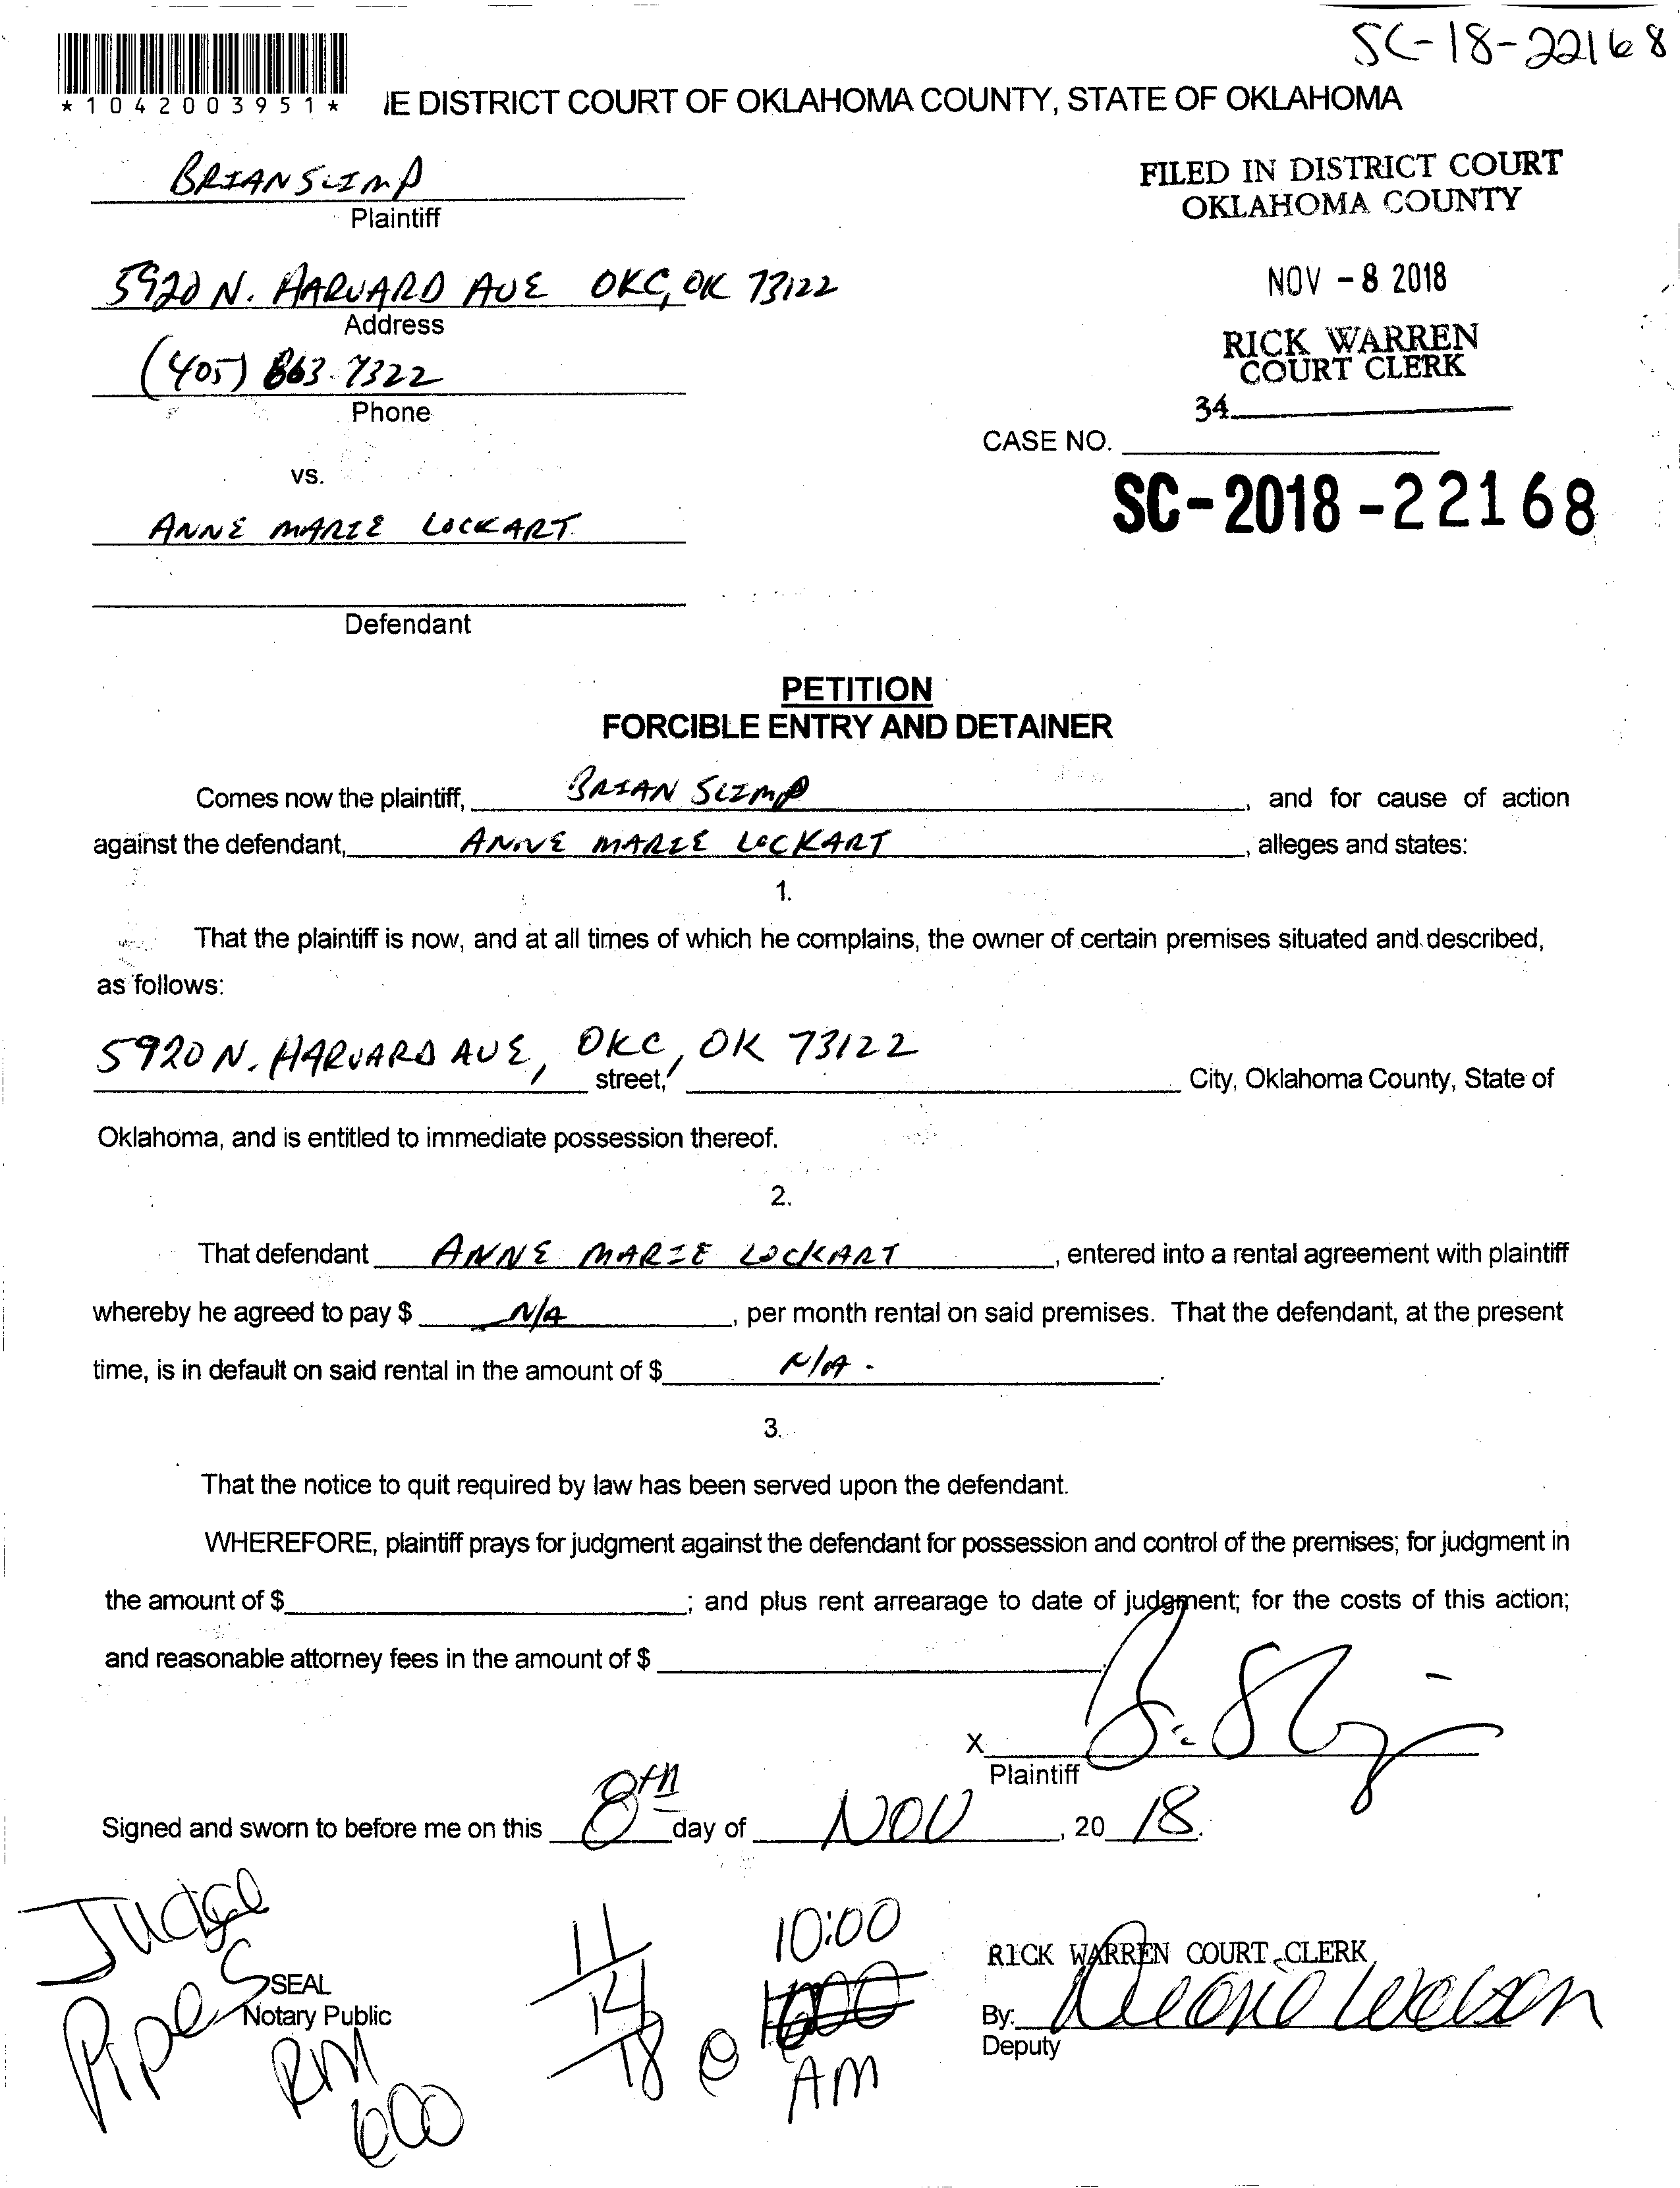 SC-18-22168
*1042003951*
IE DISTRICT COURT OF OKLAHOMA COUNTY, STATE OF OKLAHOMA
BRIAN SLIMP
Plaintiff
FILED IN DISTRICT COURT
OKLAHOMA COUNTY
5920 N. HARVARD AVE OKC, OK 73122
Address
NOV - 8 2018
(405) 863-7322
Phone
RICK WARREN
COURT CLERK
34
CASE NO.
vs.
SC-2018-22168
ANNE MARIE LOCKART
Defendant
PETITION
FORCIBLE ENTRY AND DETAINER
Comes now the plaintiff, BRIAN SLIMP, and for cause of action
against the defendant, ANNE MARIE LOCKART, alleges and states:
1.
That the plaintiff is now, and at all times of which he complains, the owner of certain premises situated and described,
as follows:
5920 N. HARVARD AVE, OKC, OK 73122
street, City, Oklahoma County, State of
Oklahoma, and is entitled to immediate possession thereof.
2.
That defendant ANNE MARIE LOCKART, entered into a rental agreement with plaintiff
whereby he agreed to pay $ N/A, per month rental on said premises. That the defendant, at the present
time, is in default on said rental in the amount of $ N/A.
3.
That the notice to quit required by law has been served upon the defendant.
WHEREFORE, plaintiff prays for judgment against the defendant for possession and control of the premises; for judgment in
the amount of $ ; and plus rent arrearage to date of judgment; for the costs of this action;
and reasonable attorney fees in the amount of $ .
X
Plaintiff
Signed and sworn to before me on this 8th day of NOV, 2018.
Judge
Pipes
SEAL
Notary Public
RM
600
11/14/18 @ 10:00
AM
RICK WARREN COURT CLERK
By:
Deputy